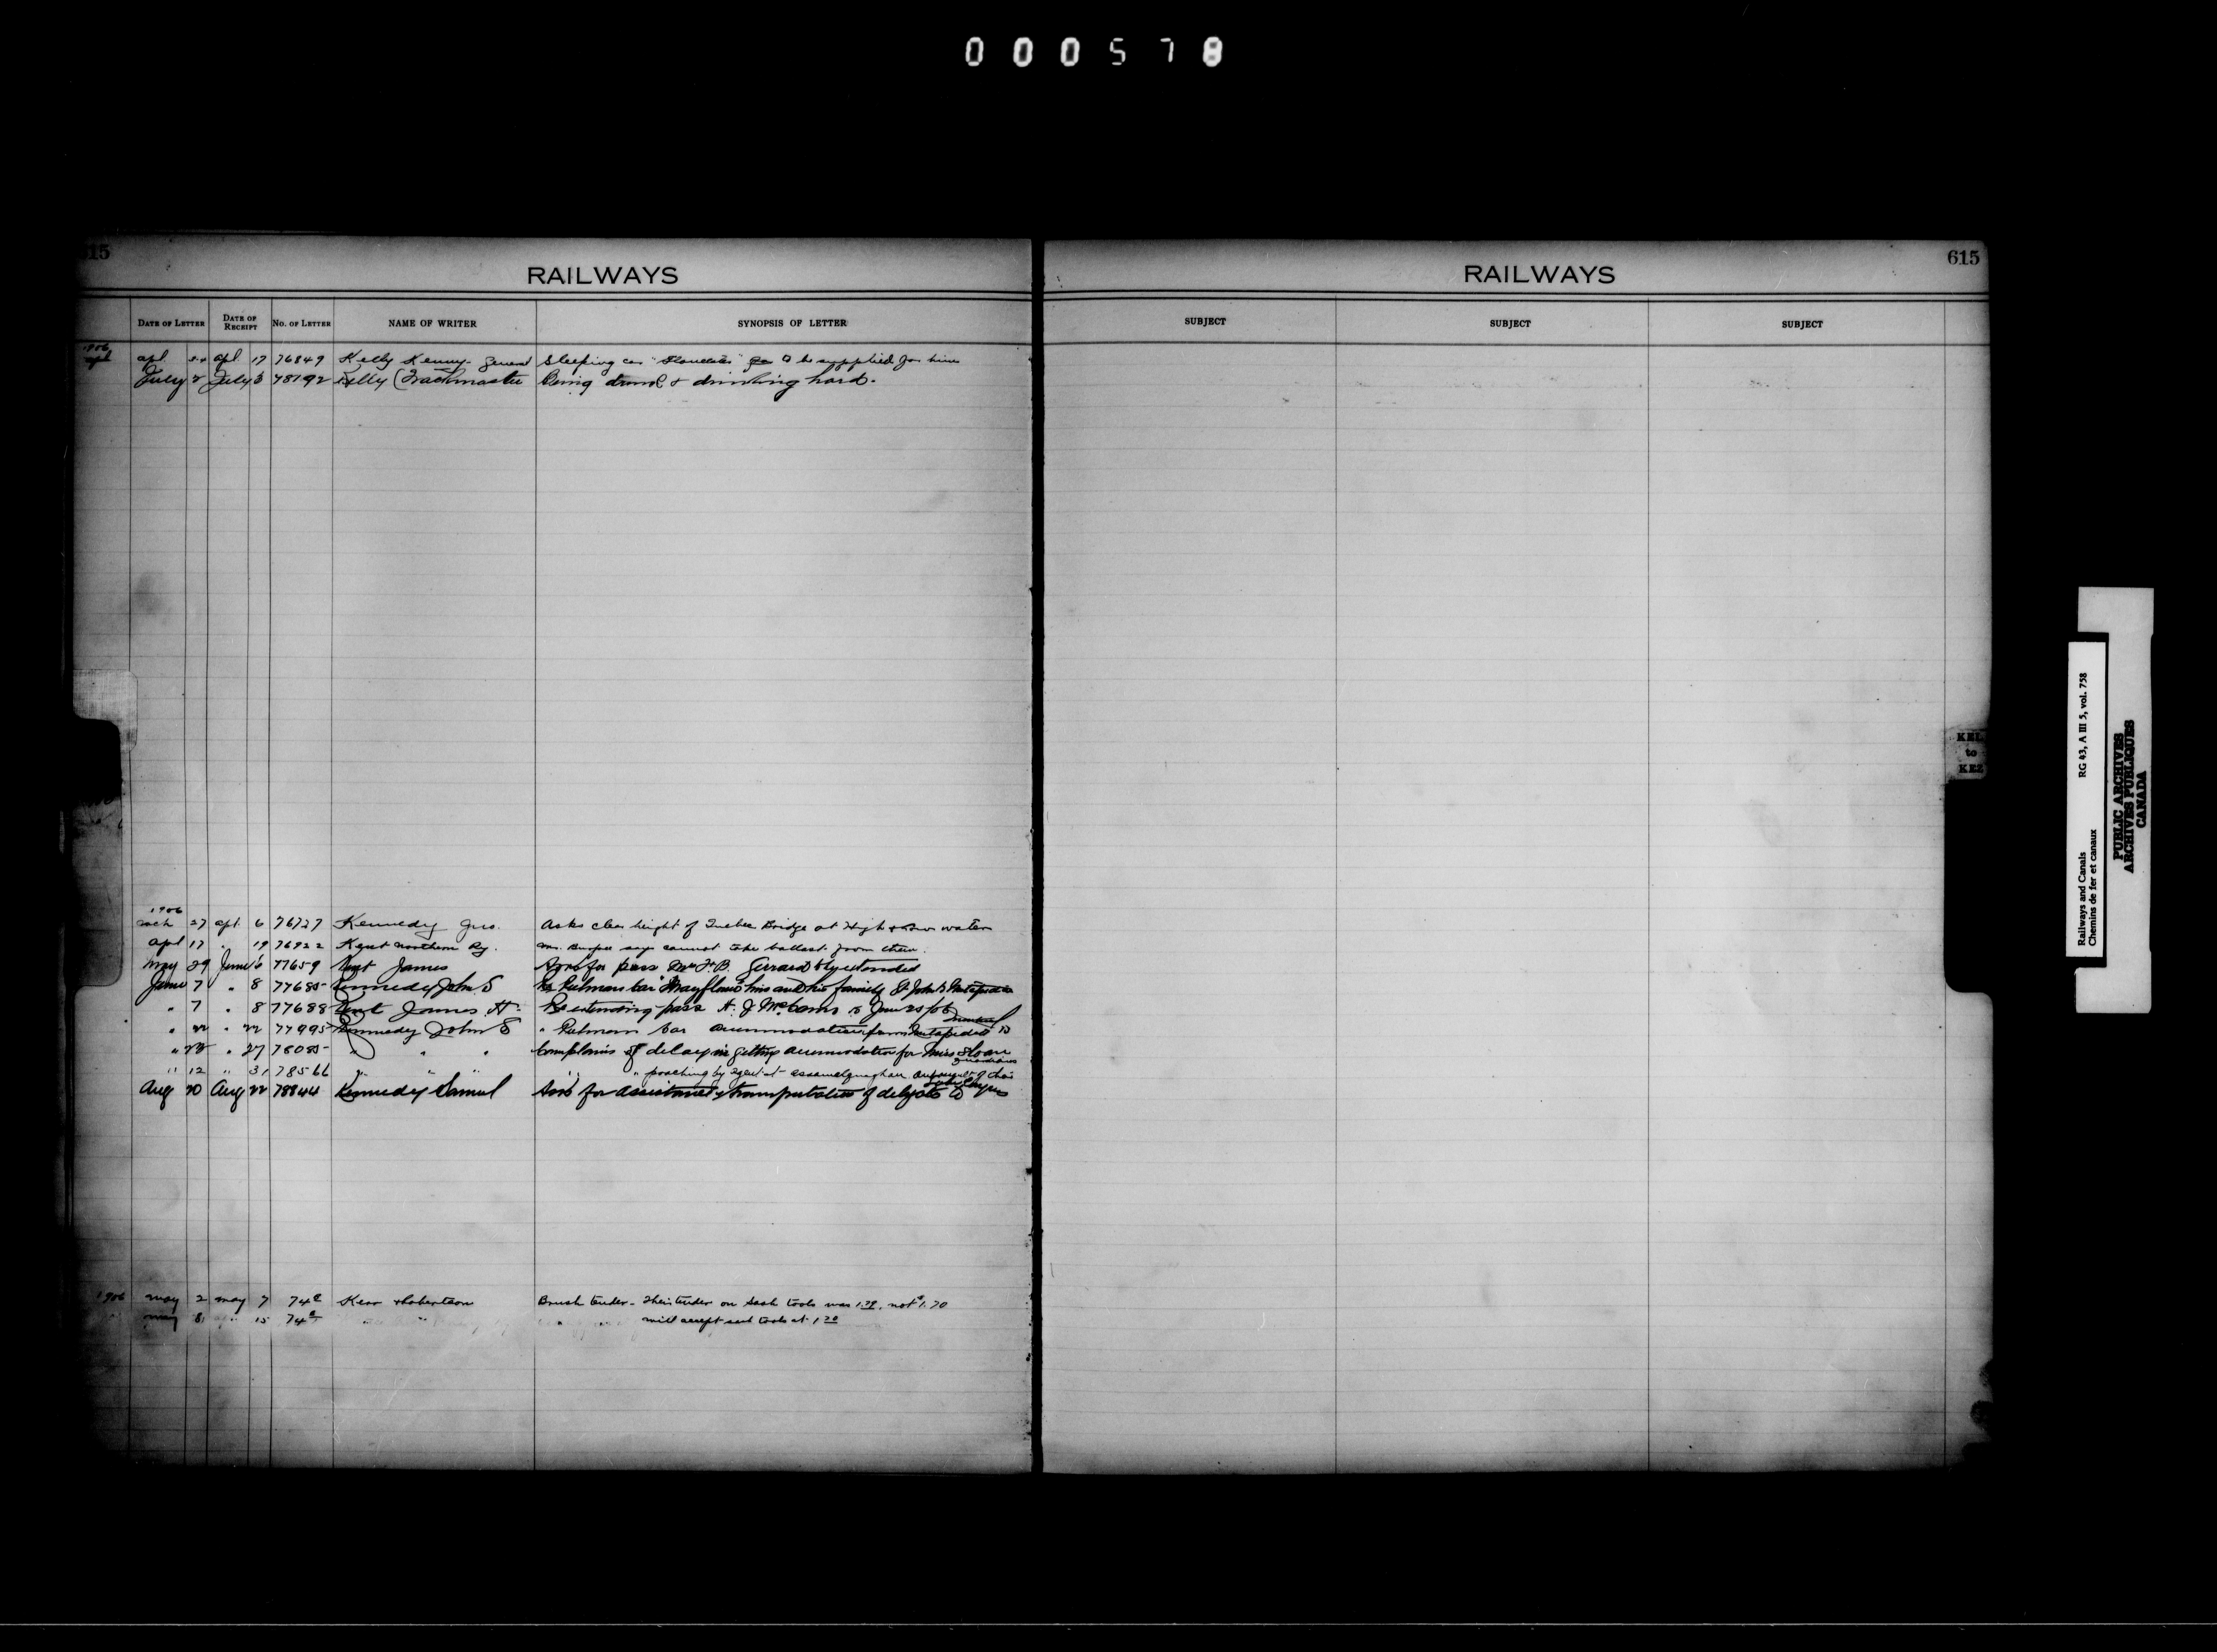 000578
615
RAILWAYS
DATE OF LETTER DATE OF RECEIPT NO. OF LETTER NAME OF WRITER SYNOPSIS OF LETTER
1906
apl apl 17 76849 Kelly Kenny- General Sleeping car to be supplied for him
July 2 July 3 78192 Kelly (Trackmaster Being drunk & drinking hard.
1906
mch 27 apl. 6 76727 Kennedy Jno. Asks clear height of Quebec Bridge at High & low water
apl 17 " 19 76922 Kent Northern Ry. Mr. Burpee says cannot take ballast from them.
May 29 June 6 77659 Kent James Asks for pass Mrs H. B. Gerrard to be extended
June 7 " 8 77685 Kennedy John S Re Pulman Car "Mayflower" him and his family St John to Metapedia
" 7 " 8 77688 Kent James H. Re extending pass H. J. to June 25/06
" 22 " 22 77995 Kennedy John S " Pulman Car accommodation from Metapedia to Montreal
" 23 " 27 78085 " " " Complains of delay in getting accommodation for Miss Sloan
" 12 " 31 78566 " " " " " poaching by agent at Assametquaghan
Aug 20 Aug 22 78844 Kennedy Samuel Asks for assistance transportation of delegate to
1906 May 2 May 7 74c Kerr & Robertson Brush tender- Their tender on Sash tools was 1.39, not $1.70
May 8 " 15 74c " " " " will accept sash tools at 1.70
RAILWAYS
615
SUBJECT SUBJECT SUBJECT
KEL
to
KEZ
Railways and Canals RG 43, A III 5, vol. 758
Chemins de fer et canaux
PUBLIC ARCHIVES
ARCHIVES PUBLIQUES
CANADA